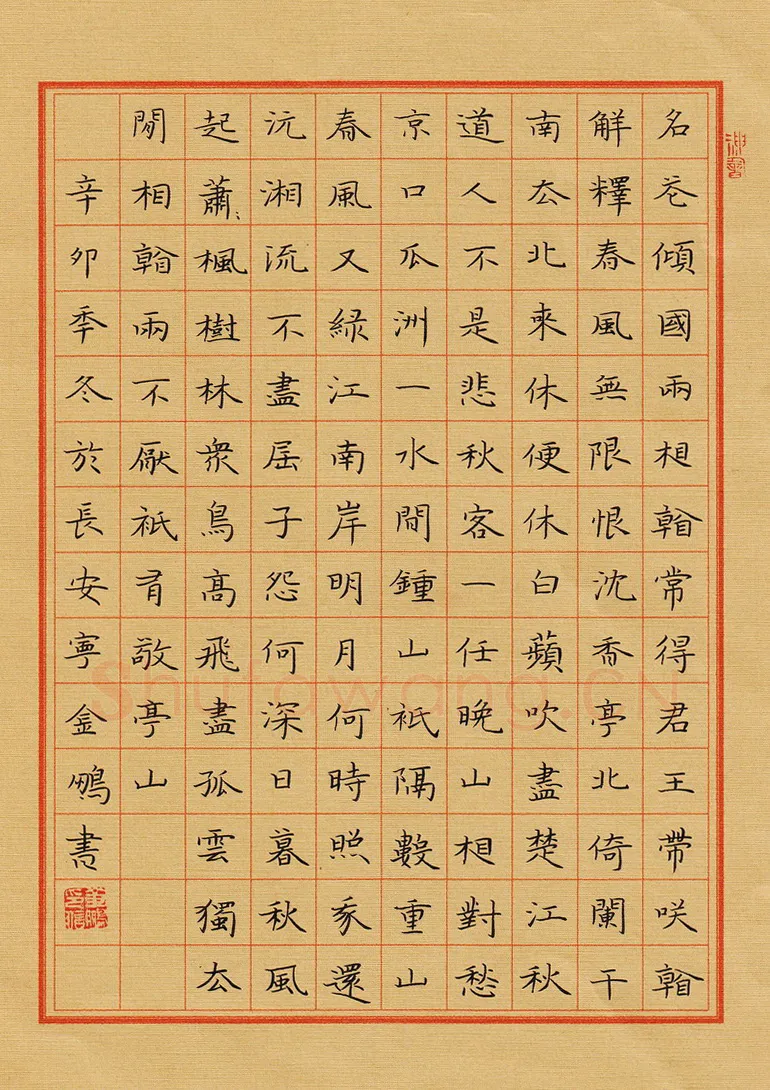 名花傾國兩相看常得君王帶咲看
解釋春風無限恨沈香亭北倚闌干
南去北來休便休白蘋吹盡楚江秋
道人不是悲秋客一任晚山相對愁
京口瓜洲一水間鍾山祇隔數重山
春風又綠江南岸明月何時照我還
沅湘流不盡屈子怨何深日暮秋風
起蕭〻楓樹林衆鳥高飛盡孤雲獨去
閒相看兩不厭祇有敬亭山
辛卯季冬於長安寧金鵬書
Shufawang.CN